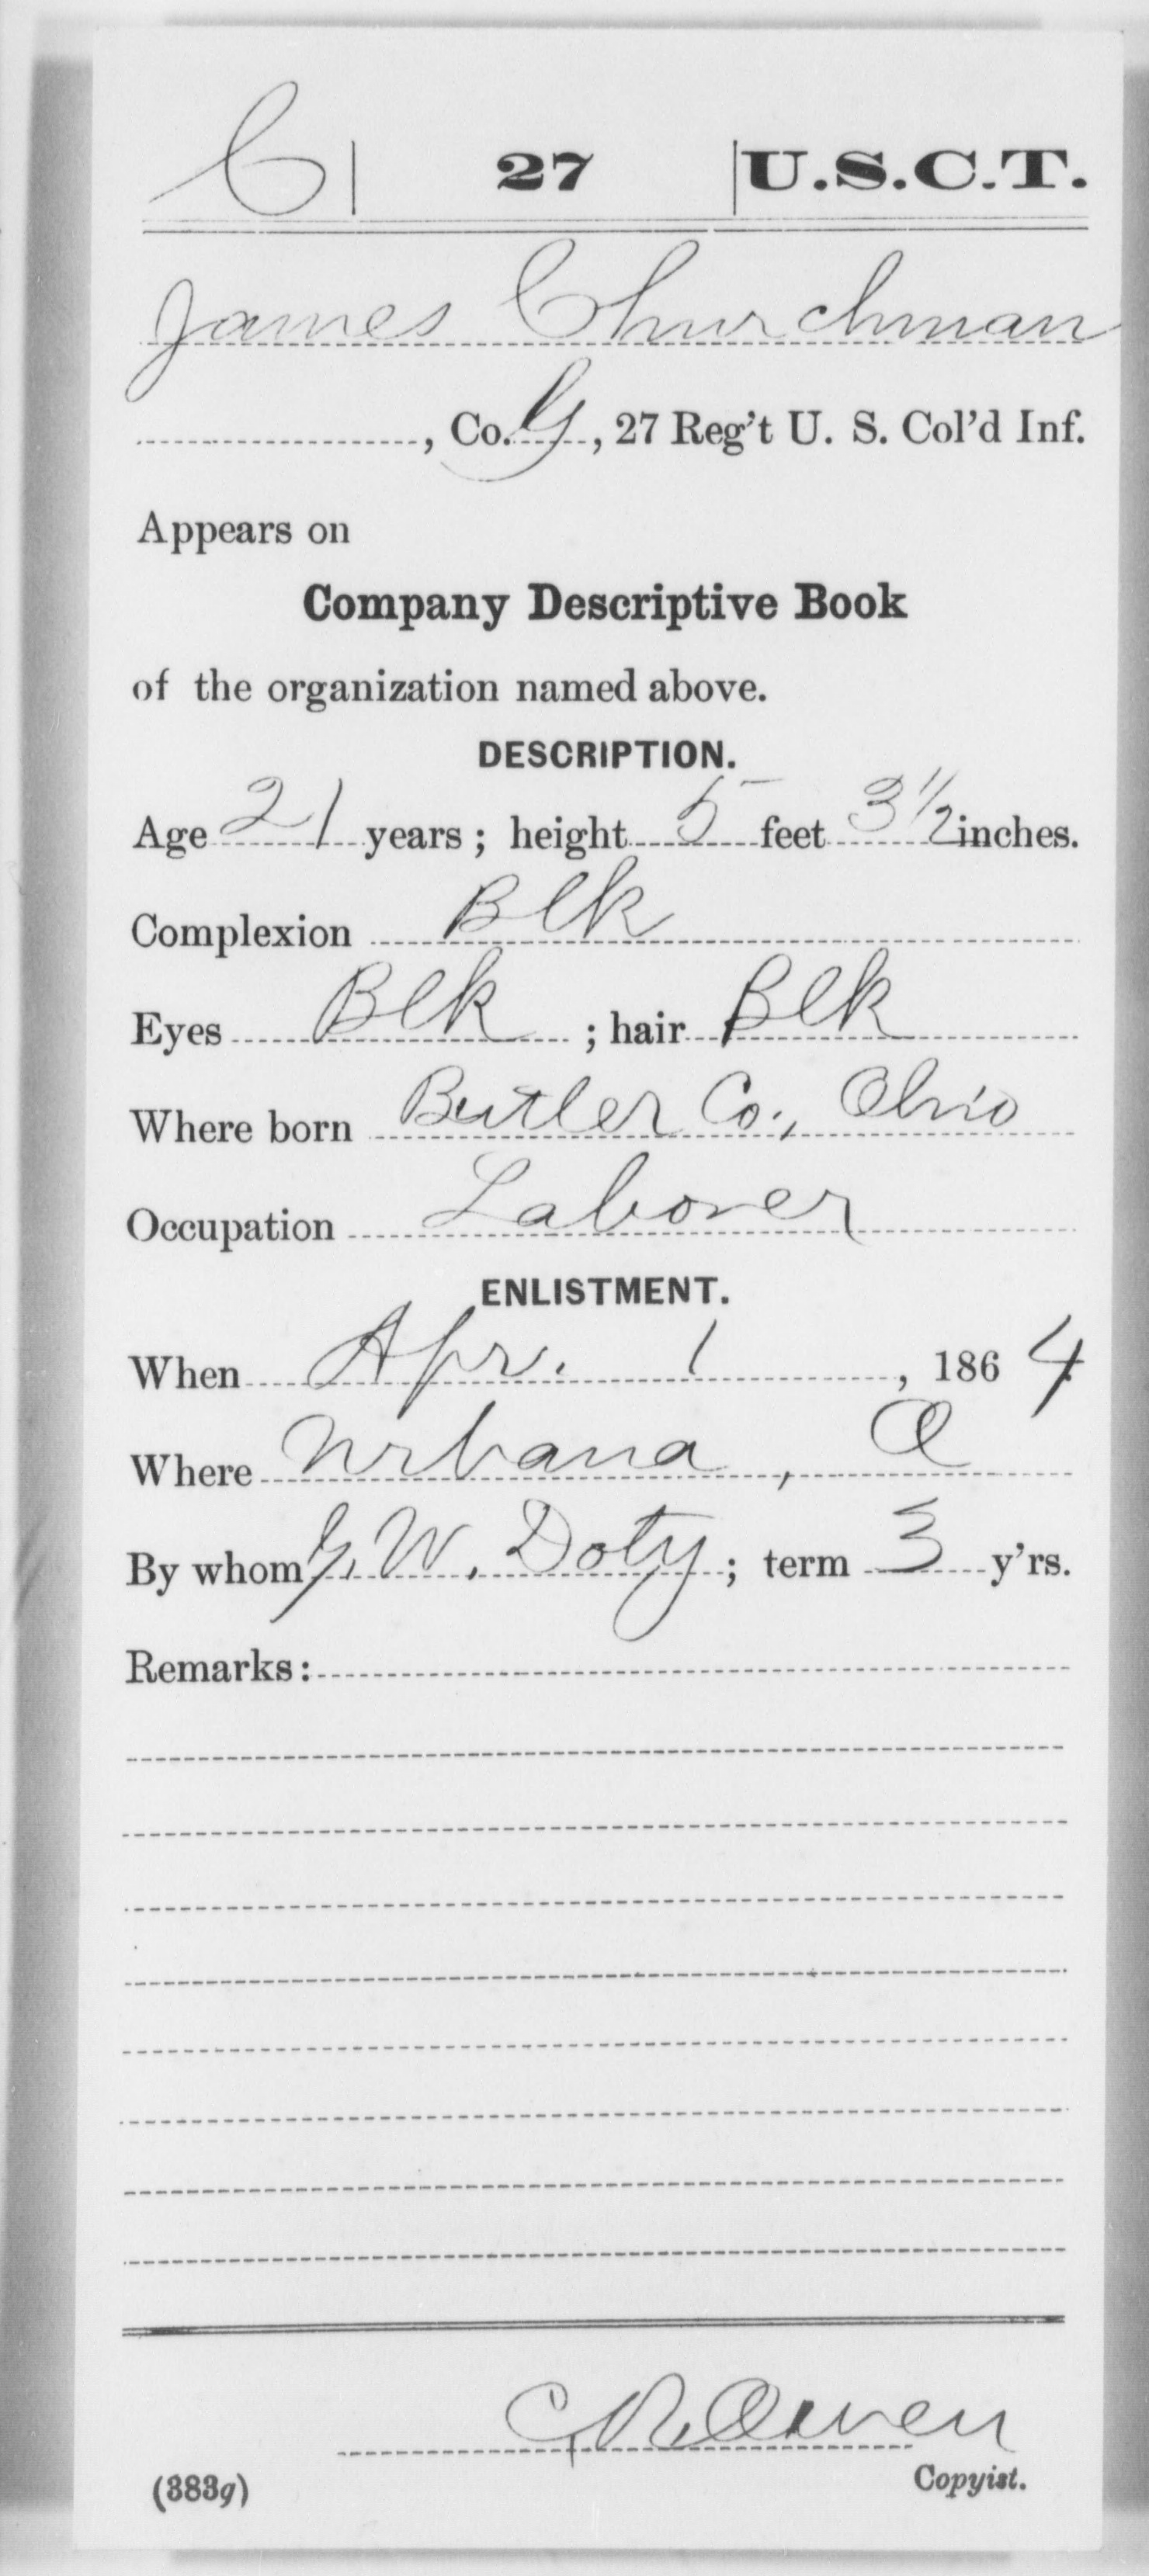 C | 27 | U.S.C.T.
James Churchman
, Co. G, 27 Reg't U. S. Col'd Inf.
Appears on
Company Descriptive Book
of the organization named above.
DESCRIPTION.
Age 21 years; height 5 feet 3 1/2 inches.
Complexion Blk
Eyes Blk; hair Blk
Where born Butler Co., Ohio
Occupation Laborer
ENLISTMENT.
When Apr. 1, 1864
Where Urbana, O
By whom G. W. Doty; term 3 y'rs.
Remarks:
C R Owen
Copyist.
(383g)